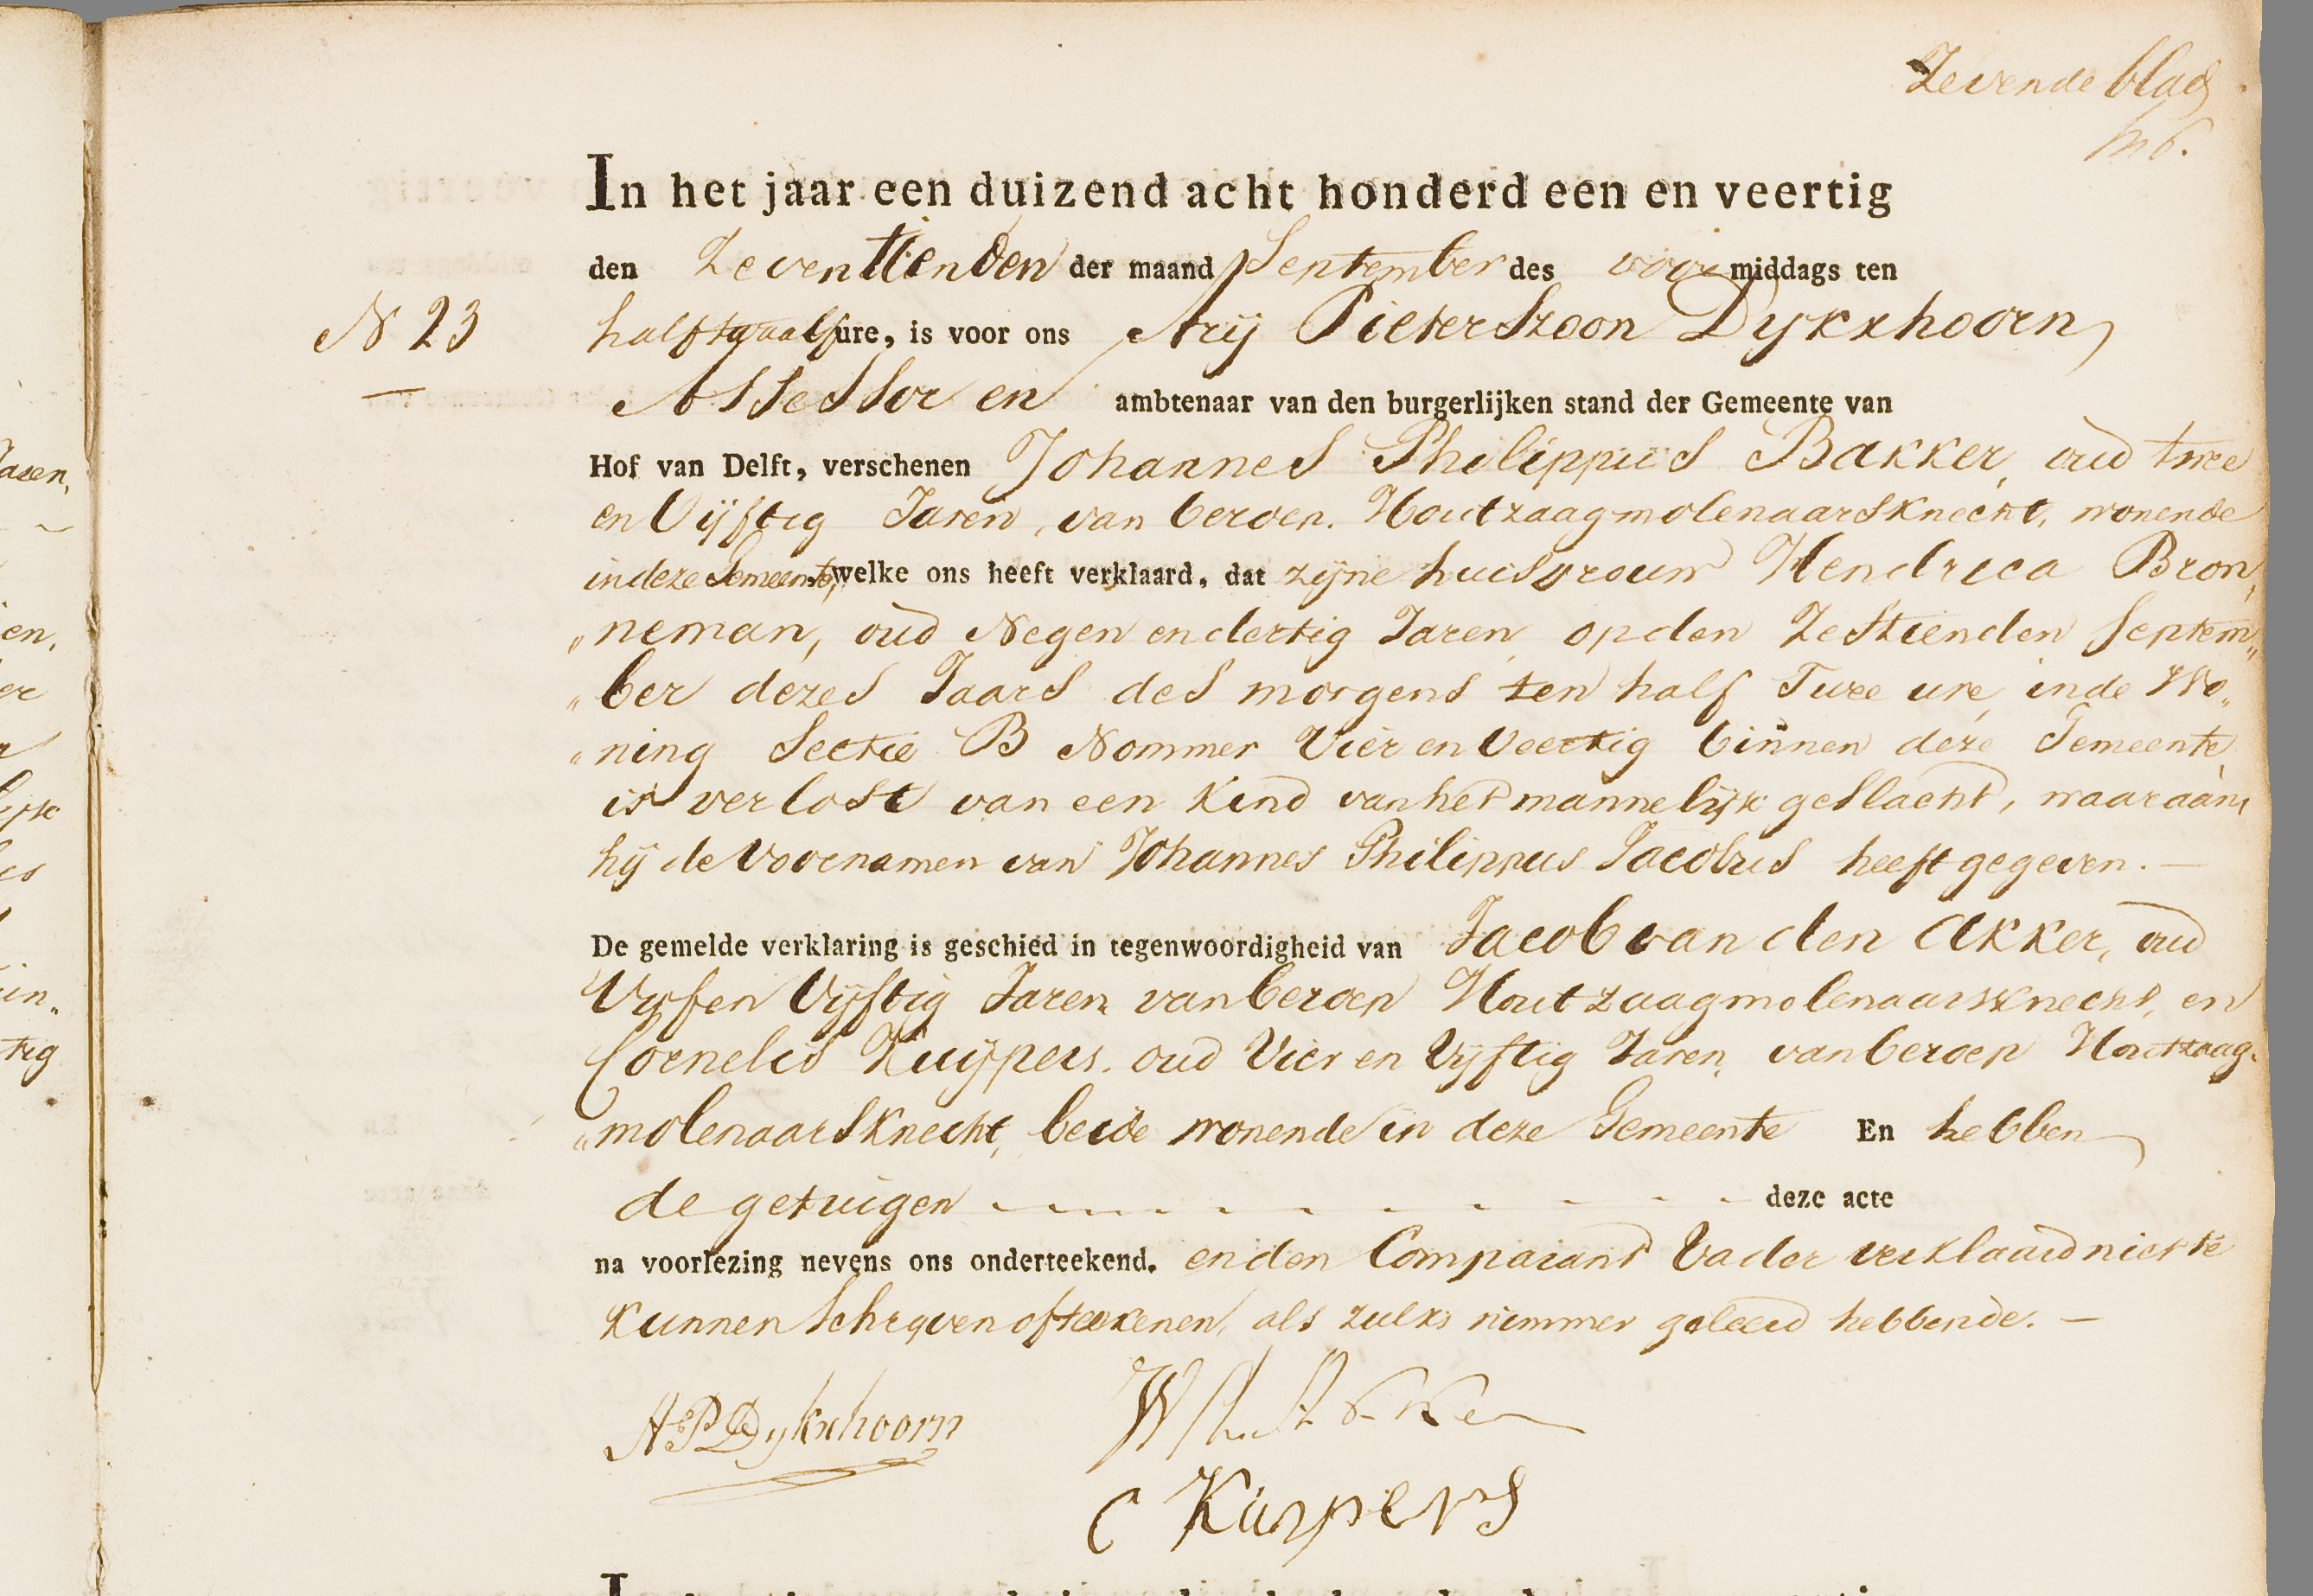 Zevende blad
In het jaar een duizend acht honderd een en veertig
den Zeventienden der maand September des voor middags ten
N 23
half twaalf ure, is voor ons Arij Pieterszoon Dykxhoorn,
Assessor en ambtenaar van den burgerlijken stand der Gemeente van
Hof van Delft, verschenen Johannes Philippus Bakker, oud twee
en Vijftig Jaren, van beroep. Houtzaagmolenaarsknecht, wonende
in deze Gemeente, welke ons heeft verklaard, dat zijne huisvrouw Hendrica Bron„
„neman, oud Negen en dertig Jaren, op den Zestienden Septem„
„ber dezes Jaars des morgens ten half Twee ure, in de Wo„
„ning Sectie B Nommer Vier en Veertig binnen deze Gemeente,
is verlost van een Kind van het mannelijk geslacht, waaraan,
hij de Voornamen van Johannes Philippus Jacobus heeft gegeven. —
De gemelde verklaring is geschied in tegenwoordigheid van Jacob van den Akker, oud
Vijf en Vijftig Jaren van beroep Houtzaagmolenaarsknecht, en
Cornelis Kuijpers. oud Vier en Vijftig Jaren, van beroep Houtzaag„
„molenaarsknecht, beide wonende in deze Gemeente En hebben
de getuigen - - - - - - - - - - deze acte
na voorlezing nevens ons onderteekend. en den Comparant Vader verklaard niet te
kunnen Schrijven of teekenen, als zulks nimmer geleerd hebbende. —
AP Dykxhoorn
C Kuypers